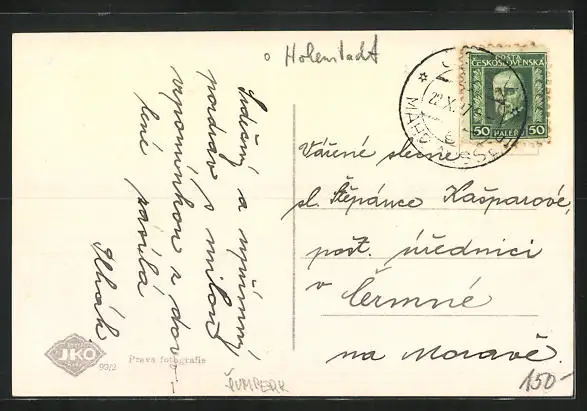 Hohenstadt
POŠTA
ČESKOSLOVENSKÁ
50 HALÉŘŮ 50
Srdečný a upřímný
pozdrav s milou
vzpomínkou z dovo-
lené zasílá
Vážené slečně
sl. Štěpánce Kašparové,
pošt. úřednici
v Čermné
na Moravě.
JKO
99/2
Pravá fotografie
ŠUMPERK
150-